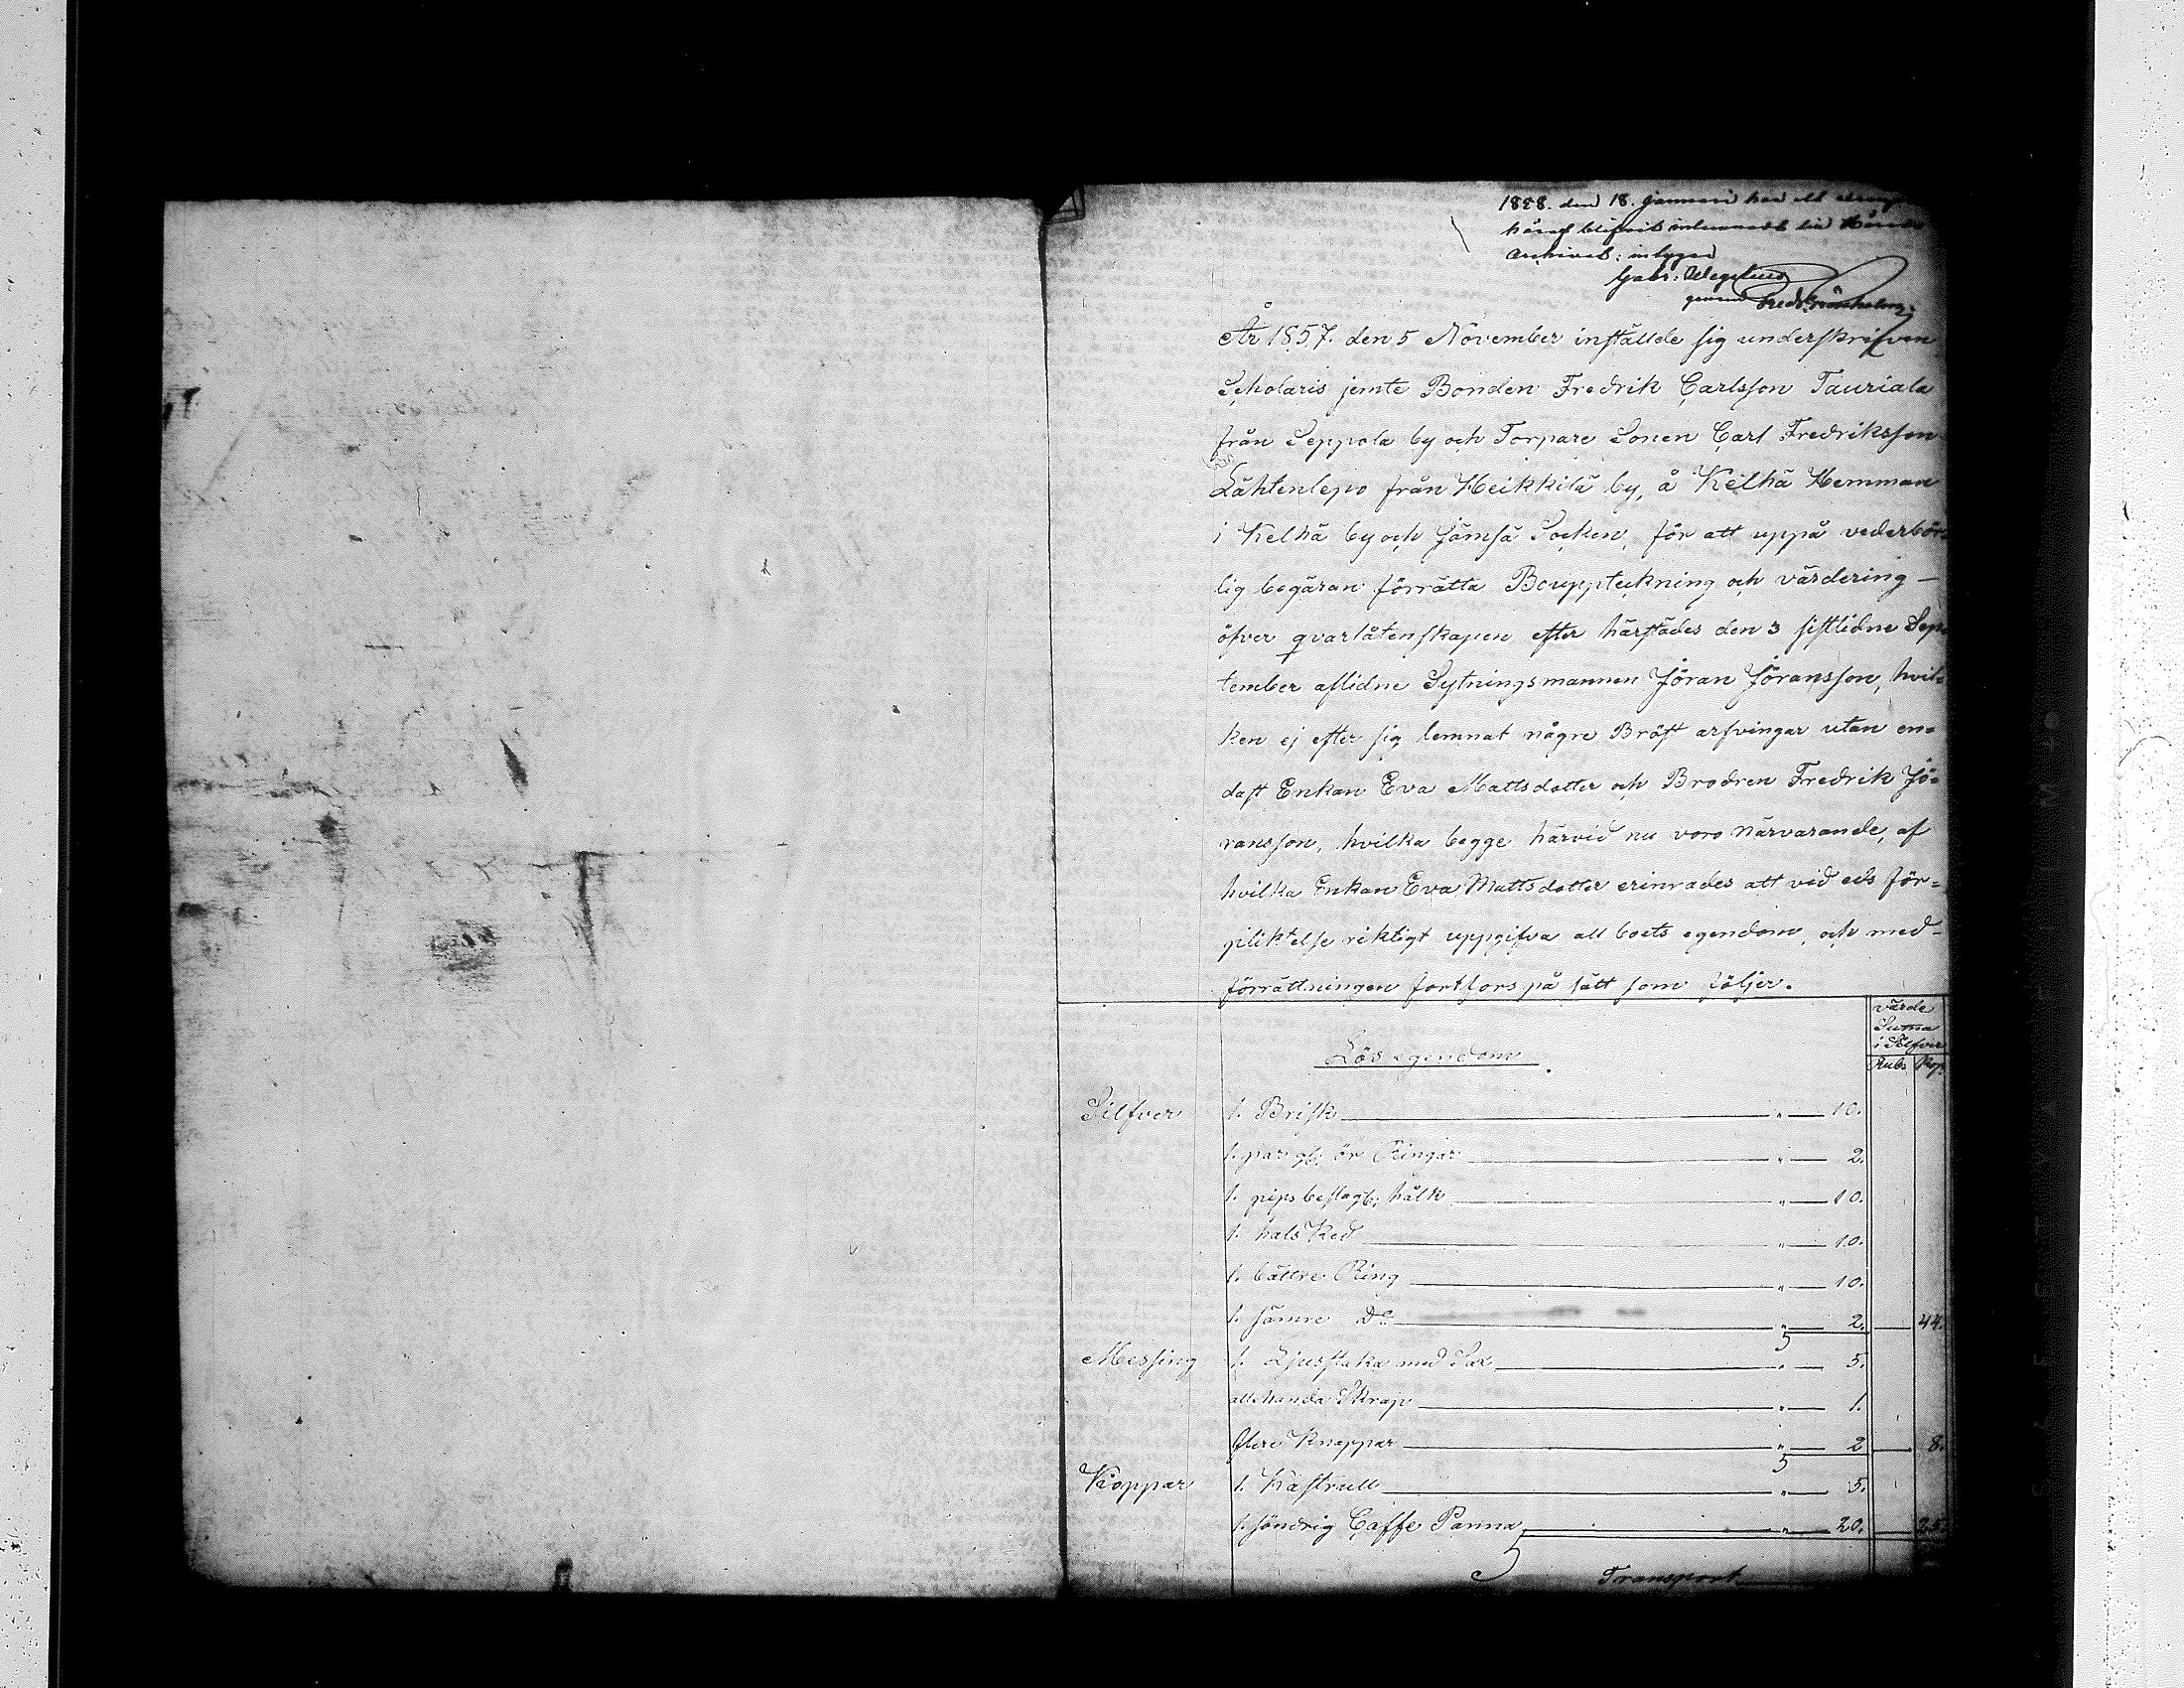 1858. den 18. Januari har ett exemplar
häraf blifvit inlemnadt till Härads
Archivet; intygar
Gabr: Wegelius
genom Fredr: Grönholm.
År 1857. den 5 November inställde sig underskrifven
Scholaris jemte Bonden Fredrik Carlsson Tauriala
från Seppola by och Torpare Sonen Carl Fredriksson
Lähtenlepo från Heikkilä by, å Kelhä Hemman
i Kelhä by och Jämsä Socken, för att uppå vederbör-
lig begäran förrätta Bouppteckning och värdering —
öfver qvarlåtenskapen efter härstädes den 3 sistlidne Sep-
tember aflidne Sytningsmannen Jöran Jöransson, hvil-
ken ej efter sig lemnat någre Bröst arfvingar utan en-
dast Enkan Eva Mattsdotter och Brodren Fredrik Jö-
ransson, hvilka begge härvid nu voro närvarande, af
hvilka Enkan Eva Mattsdotter erinrades att vid eds för-
pliktelse riktigt uppgifva all boets egendom, och med-
förrättningen fortfors på sätt som följer.
värde
Suma
i Silfver
Lös egendom.
Rub. Kop.
Silfver 1. Brisk " — 10.
1. par gl: ör Ringar " — 2.
1. pips beslag b: hälk " — 10.
1. hals Ked " — 10.
1. bättre Ring " — 10.
1. sämre D:o " — 2. — 44.
Messing 1. Ljusstaka med Sax " — 5.
allehanda Skrap " — 1.
flere Knappar " — 2 — 8.
Koppar 1. Kastrull " — 5.
1. söndrig Caffe Panna " — 20. — 25.
Transport